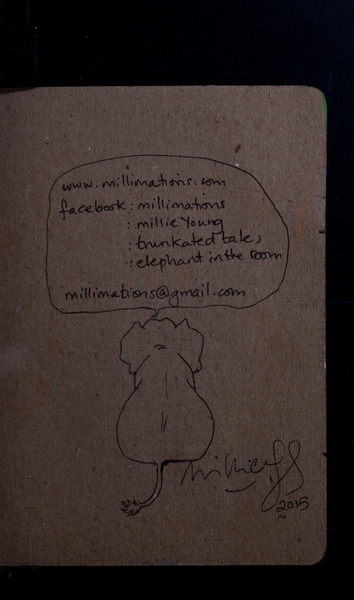 www.millimations.com
facebook: millimations
: millie Young
: trunkated tales
: elephant in the room
millimations@gmail.com
2015